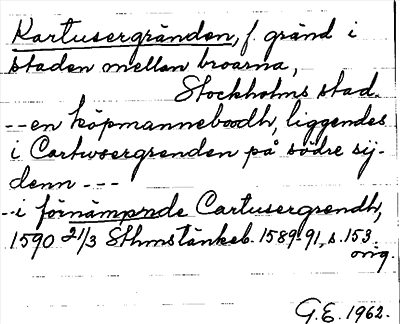 Kartusergränden, f. gränd i
staden mellan broarna,
Stockholms stad.
-- en köpmanneboodh, liggendes
i Cartusergrenden på södre sij-
denn ---
-- i förnämpnde Cartusergrendh,
1590 21/3 Sthmstänkeb. 1589-91, s. 153.
orig.
G.E. 1962.